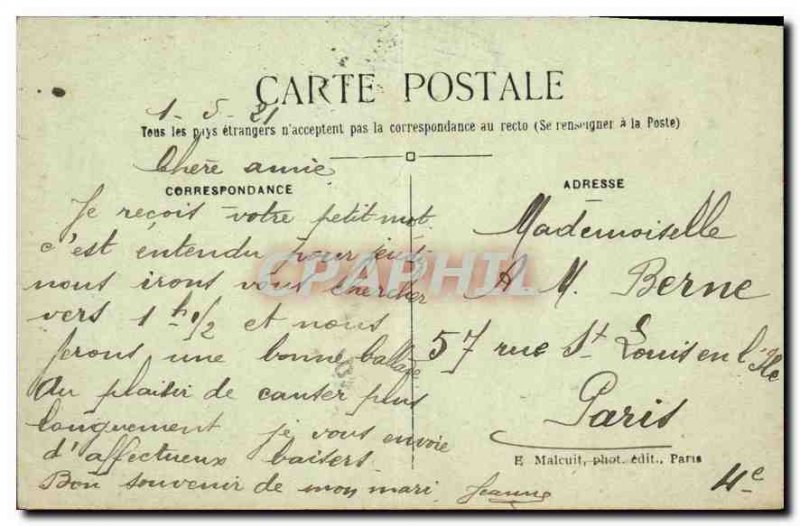 CARTE POSTALE
1-5-21
Tous les pays étrangers n'acceptent pas la correspondance au recto (Se renseigner à la Poste)
Chère amie
CORRESPONDANCE
Je reçois votre petit mot.
c'est entendu pour jeudi
nous irons vous chercher
vers 1 h 1/2 et nous
ferons une bonne ballade
du plaisir de causer plus
longuement je vous envoie
d'affectueux baisers
Bon souvenir de mon mari Jeanne
ADRESSE
Mademoiselle
A M. Berne
57 rue St Louis en l'Ile
Paris
4e
E. Malcuit, phot. édit., Paris
CPAPHIL